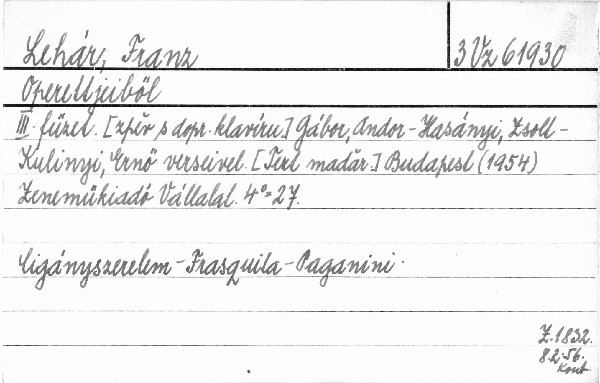 Lehár, Franz
3 Vz 61930
Operettjeiből
III. füzet. [zpěv s dopr. klavíru.] Gábor, Andor - Hasányi, Zsolt -
Kulinyi, Ernő verseivel. [Text maďar.] Budapest (1954)
Zeneműkiadó Vállalat. 4° = 27.
Cigányszerelem - Frasquita - Paganini.
Z. 1832.
8.2.56.
Kout.